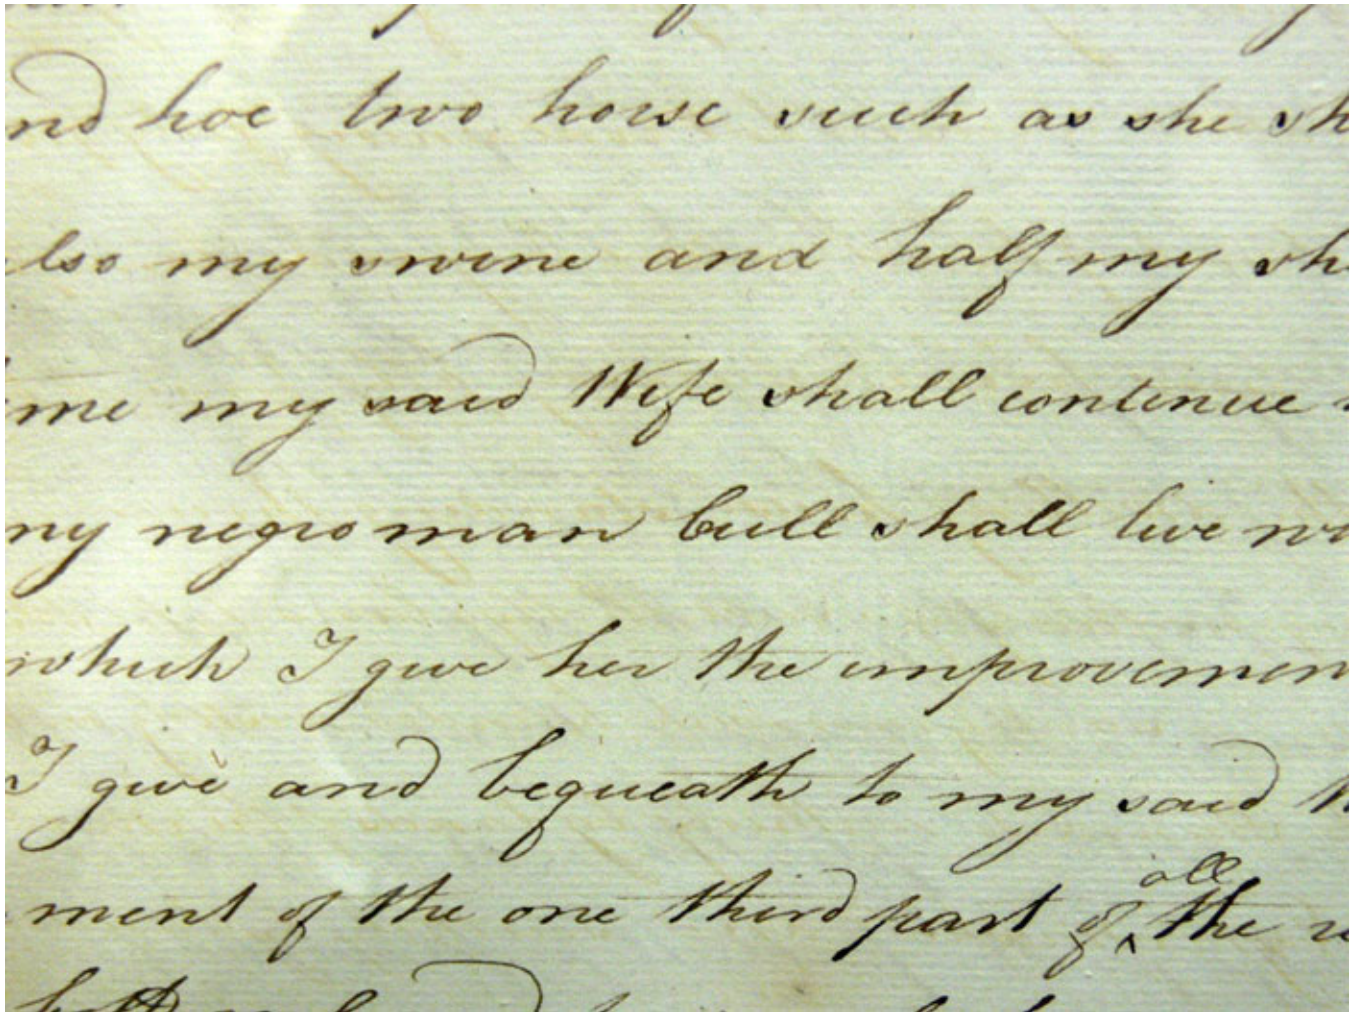 nd hoe two horse such as she sh
lso my swine and half my sh
me my said Wife shall continue
ny negro man bull shall live wi
which I give her the improvemen
I give and bequeath to my said
ment of the one third part of all the